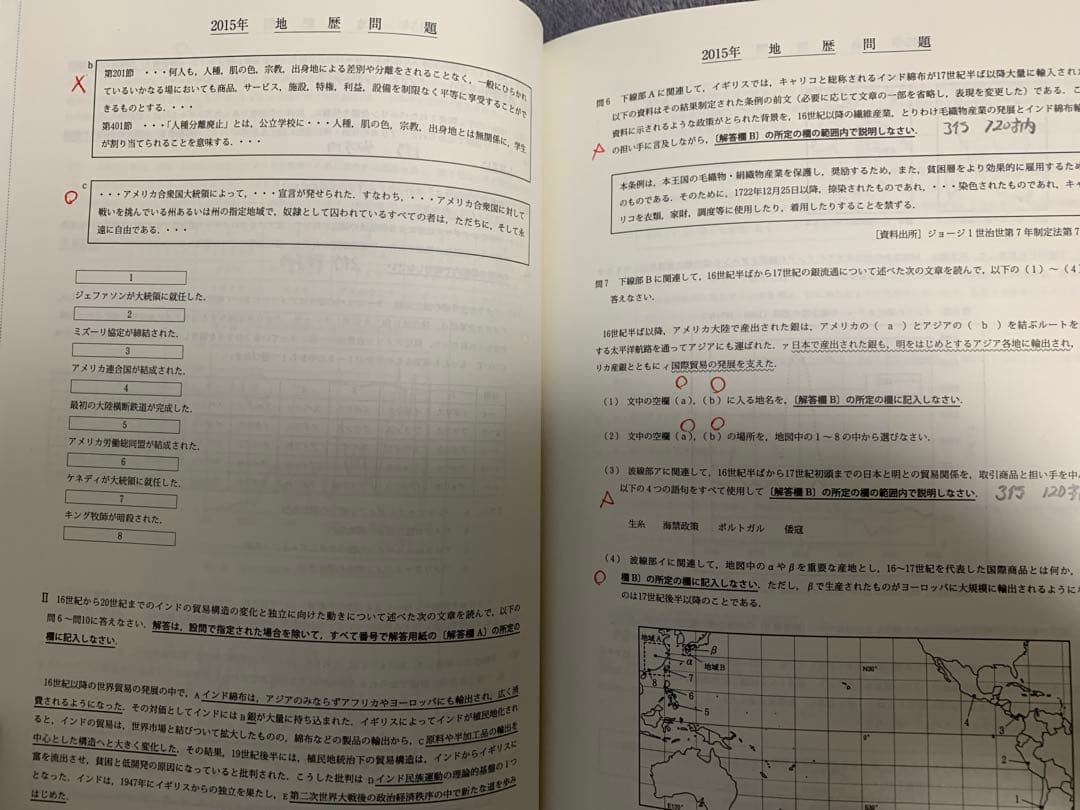 2015年 地 歴 問 題
b
第201節 ・・・何人も，人種，肌の色，宗教，出身地による差別や分離をされることなく，一般にひらかれ
ているいかなる場においても商品，サービス，施設，特権，利益，設備を制限なく平等に享受することがで
きるものとする．・・・
第401節 ・・・「人種分離廃止」とは，公立学校に・・・人種，肌の色，宗教，出身地とは無関係に，学生
が割り当てられることを意味する．・・・
c
・・・アメリカ合衆国大統領によって，・・・宣言が発せられた．すなわち，・・・アメリカ合衆国に対して
戦いを挑んでいる州あるいは州の指定地域で，奴隷として囚われているすべての者は，ただちに，そして永
遠に自由である．・・・
1
ジェファソンが大統領に就任した．
2
ミズーリ協定が締結された．
3
アメリカ連合国が結成された．
4
最初の大陸横断鉄道が完成した．
5
アメリカ労働総同盟が結成された．
6
ケネディが大統領に就任した．
7
キング牧師が暗殺された．
8
Ⅱ 16世紀から20世紀までのインドの貿易構造の変化と独立に向けた動きについて述べた次の文章を読んで，以下の
問6～問10に答えなさい．解答は，設問で指定された場合を除いて，すべて番号で解答用紙の〔解答欄A〕の所定の
欄に記入しなさい．
16世紀以降の世界貿易の発展の中で，Aインド綿布は，アジアのみならずアフリカやヨーロッパにも輸出され，広く消
費されるようになった．その対価としてインドにはB銀が大量に持ち込まれた．イギリスによってインドが植民地化され
ると，インドの貿易は，世界市場と結びついて拡大したものの，綿布などの製品の輸出から，C原料や半加工品の輸出を
中心とした構造へと大きく変化した．その結果，19世紀後半には，植民地統治下の貿易構造は，インドからイギリスに
富を流出させ，貧困と低開発の原因になっていると批判された．こうした批判はDインド民族運動の理論的基盤の1つ
となった．インドは，1947年にイギリスからの独立を果たし，E第二次世界大戦後の政治経済秩序の中で新たな道を歩み
はじめた．
2015年 地 歴 問 題
問6 下線部Aに関連して，イギリスでは，キャリコと総称されるインド綿布が17世紀半ば以降大量に輸入され
以下の資料はその結果制定された条例の前文（必要に応じて文章の一部を省略し，表現を変更した）である．こ
資料に示されるような政策がとられた背景を，16世紀以降の繊維産業，とりわけ毛織物産業の発展とインド綿布輸
の担い手に言及しながら，〔解答欄B〕の所定の欄の範囲内で説明しなさい． 3行 120字内
本条例は，本王国の毛織物・絹織物産業を保護し，奨励するため，また，貧困層をより効果的に雇用するため
のものである．そのために，1722年12月25日以降，捺染されたものであれ，・・・染色されたものであれ，キャ
リコを衣類，家財，調度等に使用したり，着用したりすることを禁ずる．
［資料出所］ ジョージ1世治世第7年制定法第7
問7 下線部Bに関連して，16世紀半ばから17世紀の銀流通について述べた次の文章を読んで，以下の（1）～（4）
答えなさい．
16世紀半ば以降，アメリカ大陸で産出された銀は，アメリカの（ a ）とアジアの（ b ）を結ぶルートを
する太平洋航路を通ってアジアにも運ばれた．ア日本で産出された銀も，明をはじめとするアジア各地に輸出され，
リカ産銀とともにィ国際貿易の発展を支えた．
（1） 文中の空欄（a），（b）に入る地名を，〔解答欄B〕の所定の欄に記入しなさい．
（2） 文中の空欄（a），（b）の場所を，地図中の1～8の中から選びなさい．
（3） 波線部アに関連して，16世紀半ばから17世紀初頭までの日本と明との貿易関係を，取引商品と担い手を中
以下の4つの語句をすべて使用して〔解答欄B〕の所定の欄の範囲内で説明しなさい． 3行 120字
生糸 海禁政策 ポルトガル 倭寇
（4） 波線部イに関連して，地図中のαやβを重要な産地とし，16～17世紀を代表した国際商品とは何か．
欄B〕の所定の欄に記入しなさい．ただし，βで生産されたものがヨーロッパに大規模に輸出されるように
のは17世紀後半以降のことである．
地域A
β
α
地域B
N30°
7
8
6
5
4
3
0°
2
1
E120°